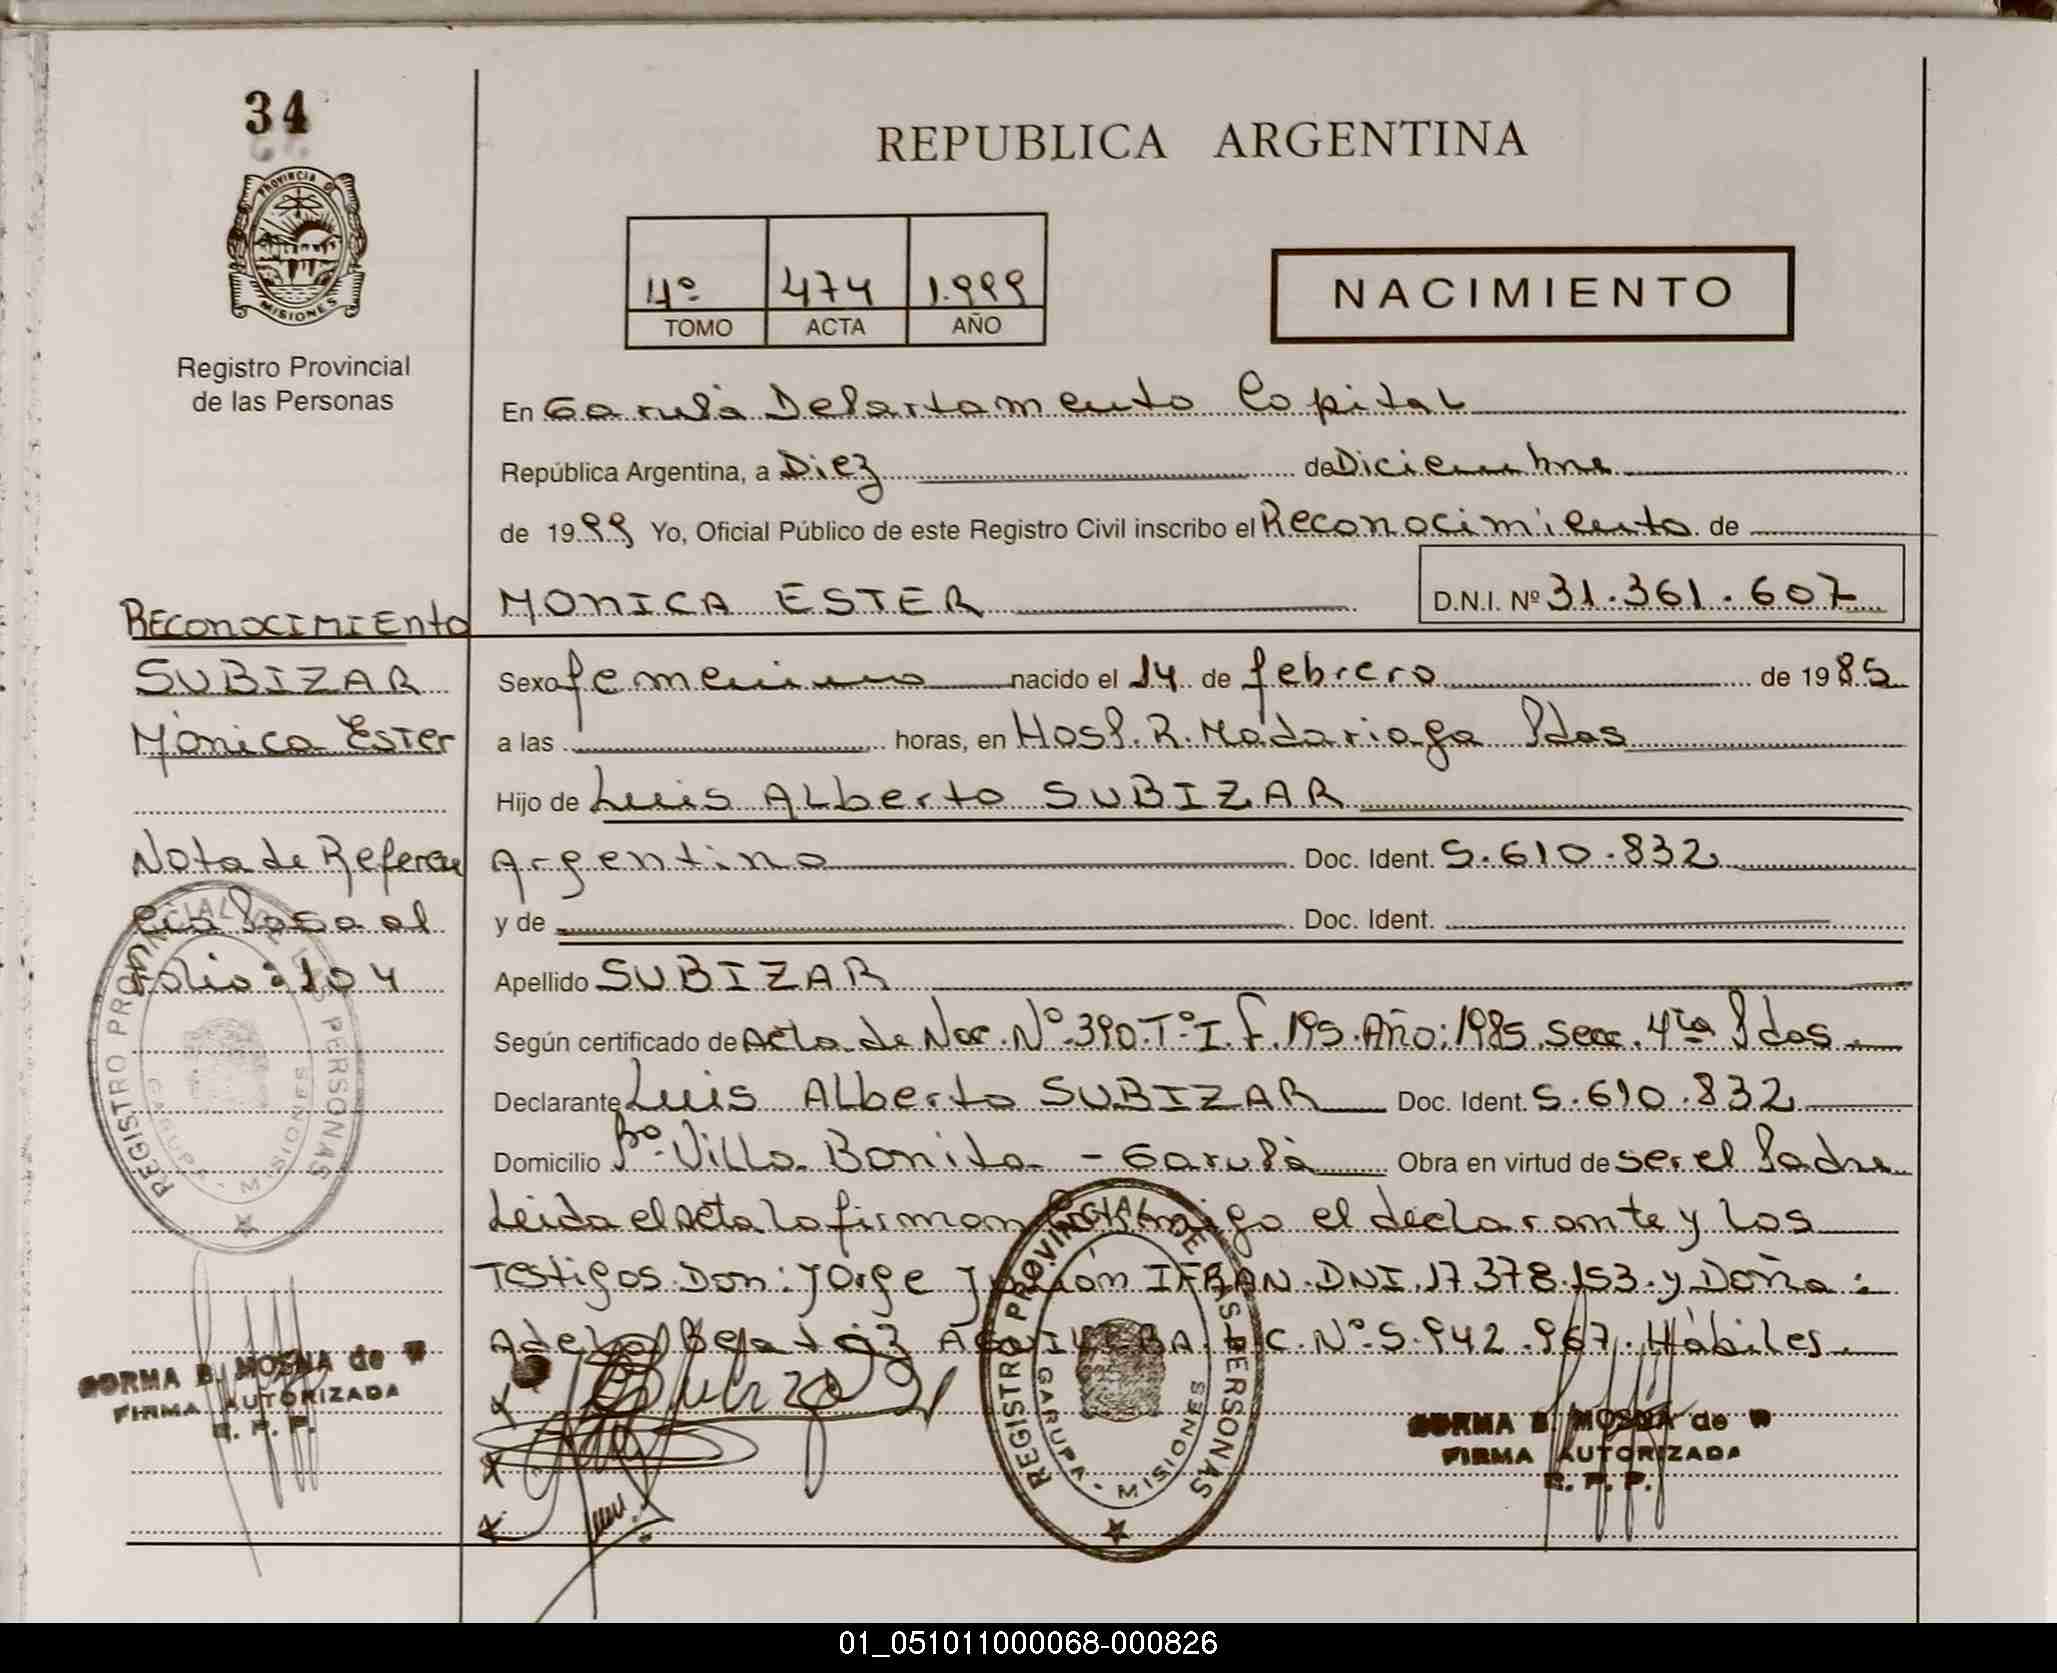 34
REPUBLICA ARGENTINA
PROVINCIA D
MISIONES
Registro Provincial
de las Personas
4º 474 1.999
TOMO ACTA AÑO
NACIMIENTO
En Garupá Departamento Capital
República Argentina, a Diez de Diciembre
de 1999 Yo, Oficial Público de este Registro Civil inscribo el Reconocimiento de
MONICA ESTER D.N.I. Nº 31.361.607
RECONOCIMIENto
SUBIZAR
Mónica Ester
Nota de Referen
cia Pasa al
Folio: 104
Sexo femenino nacido el 14 de febrero de 1985
a las horas, en Hosp. R. Madariaga Pdas
Hijo de Luis ALberto SUBIZAR
Argentino Doc. Ident. 5.610.832
y de Doc. Ident.
Apellido SUBIZAR
Según certificado de Acta de Nac. Nº 390. Tº I. F. 195. Año: 1985. Secc. 4ta Pdas.
Declarante Luis ALberto SUBIZAR Doc. Ident. 5.610.832
Domicilio Bº. Villa Bonita - Garupá Obra en virtud de ser el Padre
Leida el Acta la firman conmigo el declarante y los
Testigos Don: Jorge IFRAN. DNI. 17.378.153. y Doña:
Adela Beatriz AGUILERA. L.C. Nº 5.942.967. Hábiles.
REGISTRO PROVINCIAL DE LAS PERSONAS
GARUPA - MISIONES
NORMA B. MOSNA de W
FIRMA AUTORIZADA
R. P. P.
REGISTRO PROVINCIAL DE LAS PERSONAS
GARUPA - MISIONES
NORMA B. MOSNA de W
FIRMA AUTORIZADA
R. P. P.
01_051011000068-000826